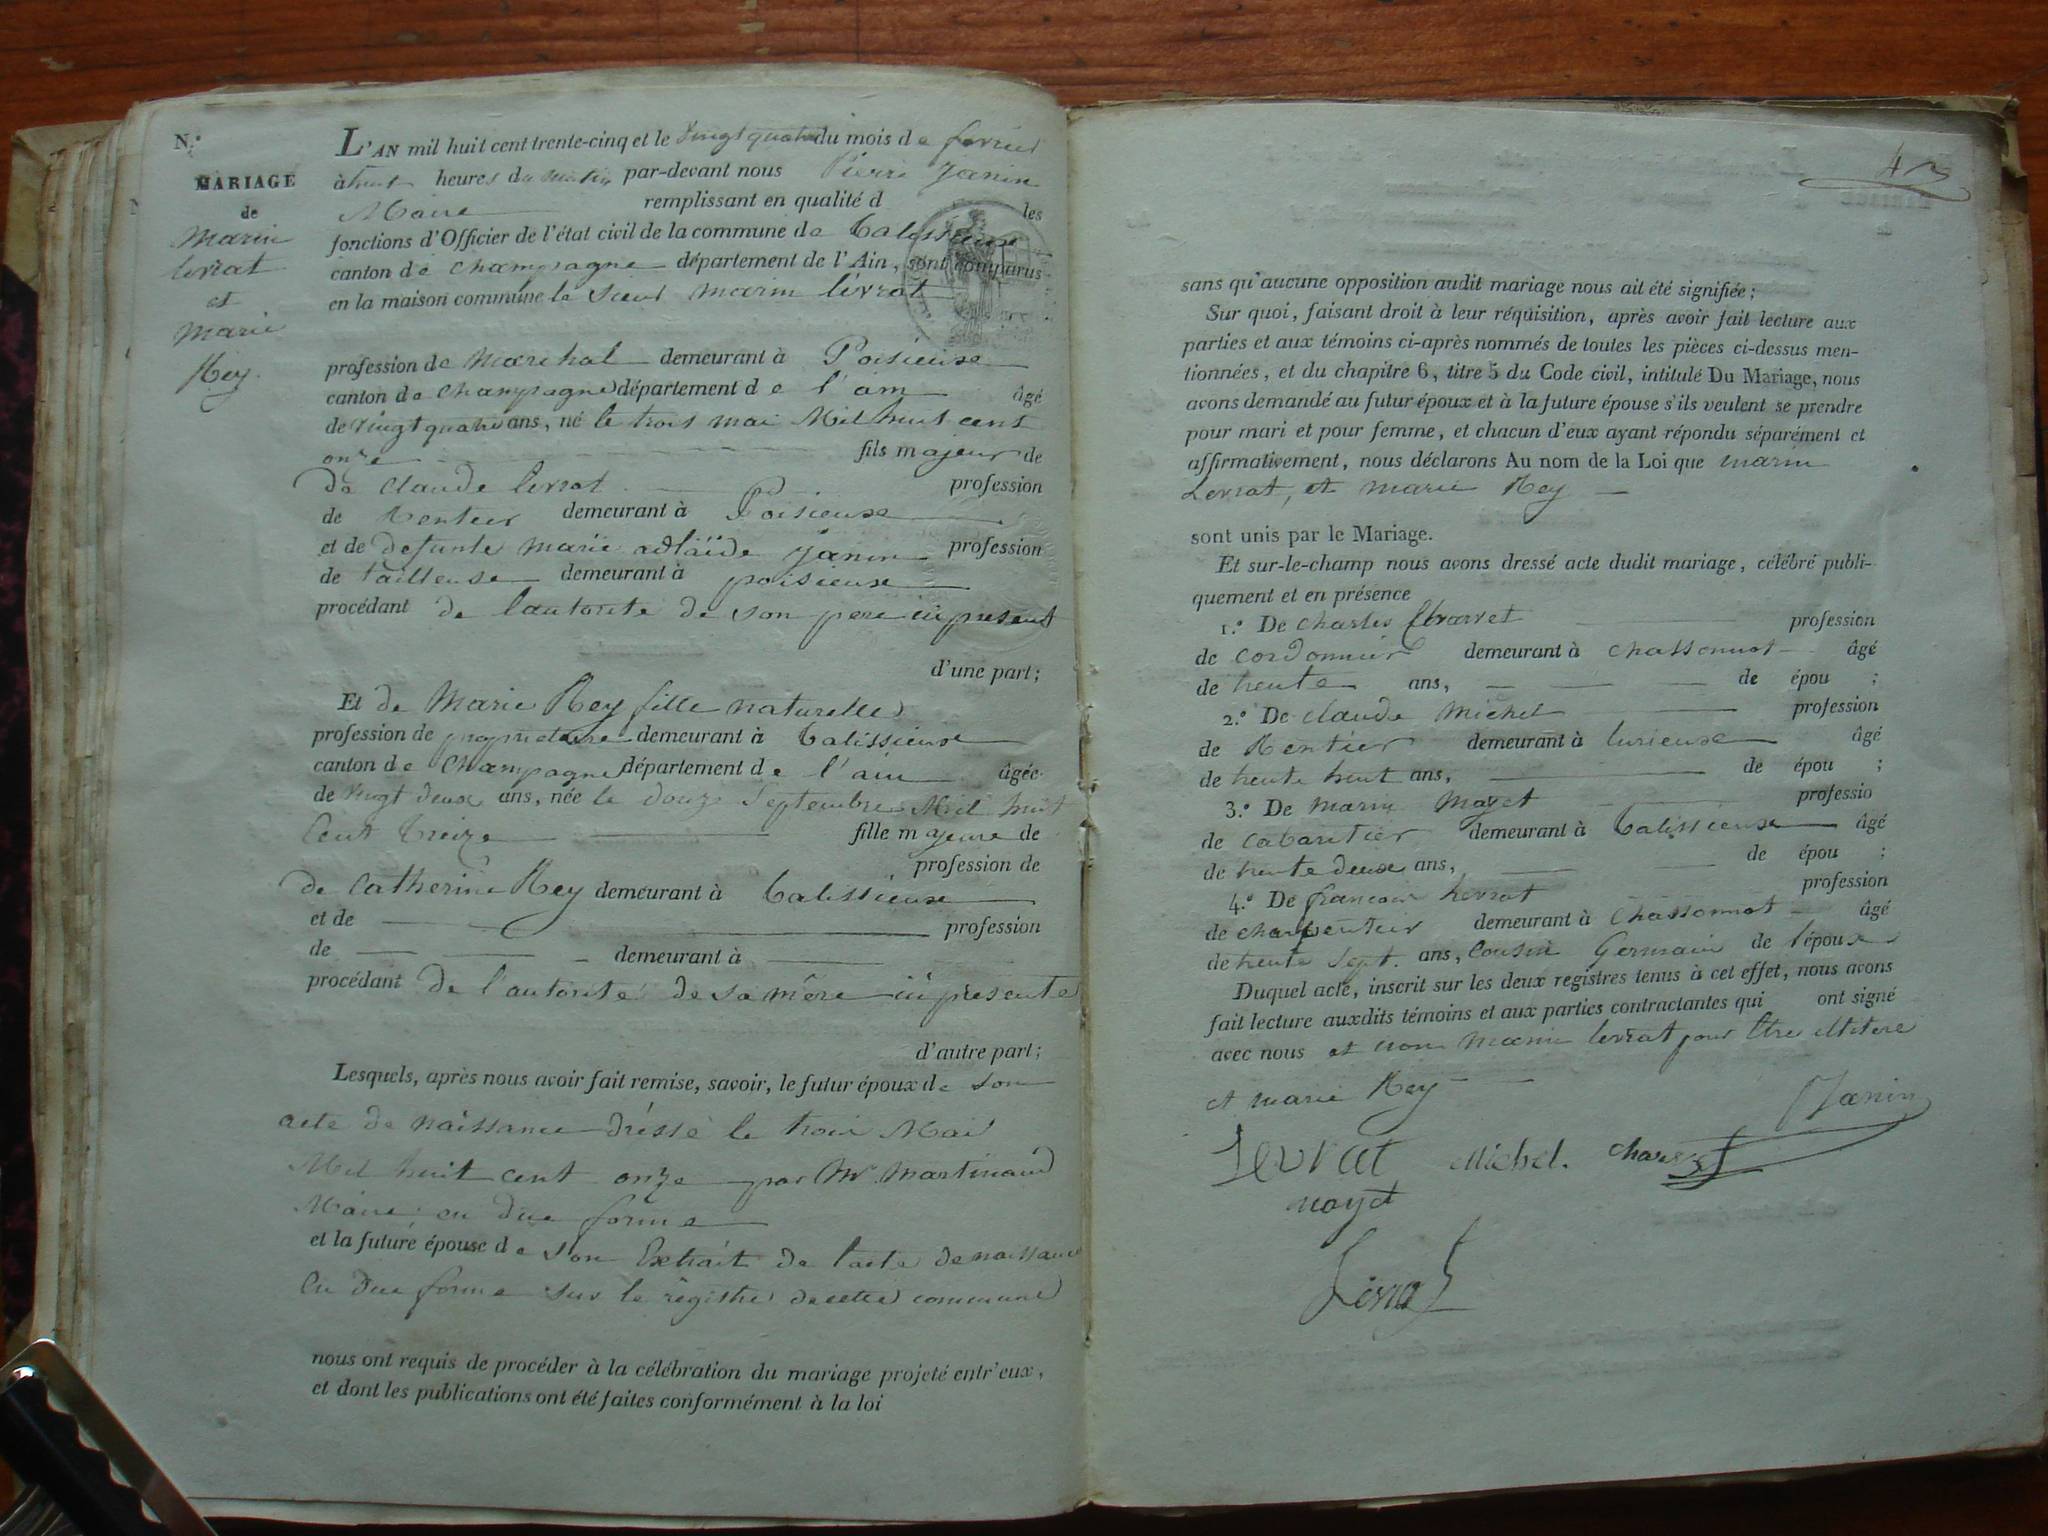 N.o
MARIAGE
de
Marin
levrat
et
Marie
Rey.
L'AN mil huit cent trente-cinq et le vingt quatre du mois de fevrier
à huit heures du matin par-devant nous Pierre Janin
Maire remplissant en qualité d les
fonctions d'Officier de l'état civil de la commune de talissieux
canton de Champagne département de l'Ain, sont comparus
en la maison commune le sieur marin levrat
profession de marechal demeurant à Poisieux
canton de champagne département de l'ain âgé
de vingt quatre ans, né le trois mai Mil huit cent
onze fils majeur de
de claude levrat profession
de Rentier demeurant à Poisieux
et de defunte marie adlaïde janin profession
de tailleuse demeurant à poisieux
procédant de l'autorite de son pere ici present
d'une part;
Et de Marie Rey fille naturelle
profession de proprietaire demeurant à talissieux
canton de Champagne département de l'ain âgée
de vingt deux ans, née le douze septembre Mil huit
cent treize fille majeure de
profession de
de catherine Rey demeurant à talissieux
et de profession
de demeurant à
procédant de l'autorité de sa mère ici presente
d'autre part;
Lesquels, après nous avoir fait remise, savoir, le futur époux de son
acte de naissance dressé le trois Mai
Mil huit cent onze par Mr. Martinand
Maire en due forme
et la future épouse de son Extrait de l'acte de naissance
en due forme sur le registre de cette commune
nous ont requis de procéder à la célébration du mariage projeté entr'eux,
et dont les publications ont été faites conformément à la loi
sans qu'aucune opposition audit mariage nous ait été signifiée;
Sur quoi, faisant droit à leur réquisition, après avoir fait lecture aux
parties et aux témoins ci-après nommés de toutes les pièces ci-dessus men-
tionnées, et du chapitre 6, titre 5 du Code civil, intitulé Du Mariage, nous
avons demandé au futur époux et à la future épouse s'ils veulent se prendre
pour mari et pour femme, et chacun d'eux ayant répondu séparément et
affirmativement, nous déclarons Au nom de la Loi que marin
Levrat, et marie Rey
sont unis par le Mariage.
Et sur-le-champ nous avons dressé acte dudit mariage, célébré publi-
quement et en présence
1.o De charles Charvet profession
de cordonnier demeurant à chassonnot âgé
de trente ans, de épou ;
2.o De claude Michel profession
de Rentier demeurant à lurieux âgé
de trente huit ans, de épou ;
3.o De marin mayet professio
de cabaretier demeurant à talissieux âgé
de trente deux ans, de épou ;
4.o De francois levrat profession
de charpentier demeurant à Chassonnot âgé
de trente sept ans, cousin Germain de l'époux
Duquel acte, inscrit sur les deux registres tenus à cet effet, nous avons
fait lecture auxdits témoins et aux parties contractantes qui ont signé
avec nous et non marin levrat pour être illitere
et marie Rey
Janin
Levrat Michel. charvet
mayet
Levrat